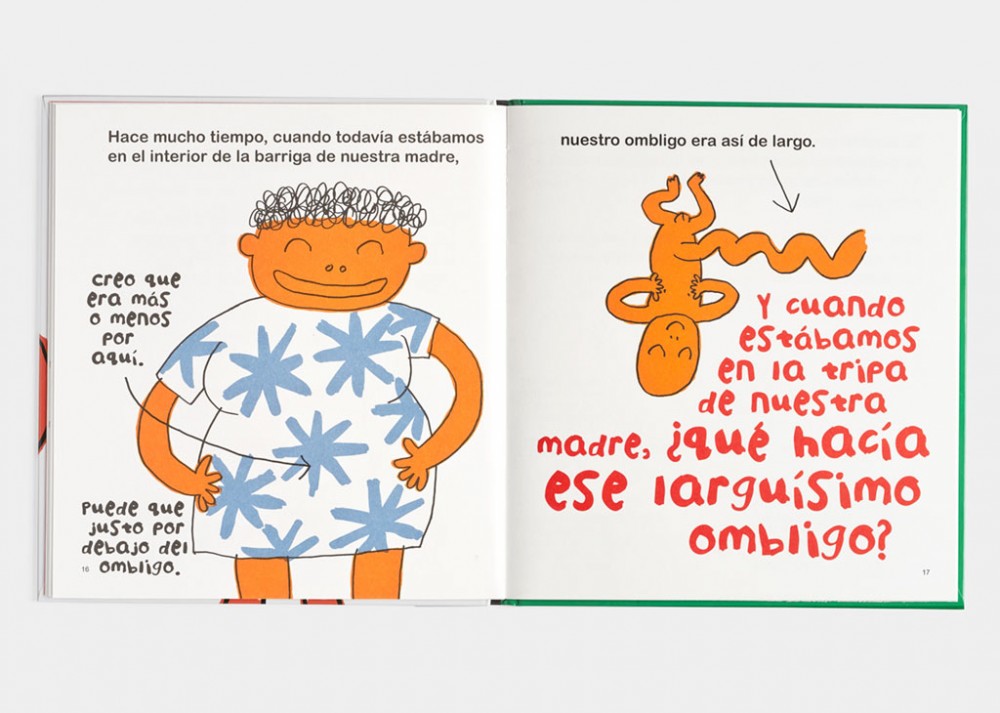 Hace mucho tiempo, cuando todavía estábamos
en el interior de la barriga de nuestra madre,
creo que
era más
o menos
por
aquí.
puede que
justo por
debajo del
ombligo.
16
nuestro ombligo era así de largo.
Y cuando
estábamos
en la tripa
de nuestra
madre, ¿qué hacía
ese larguísimo
ombligo?
17